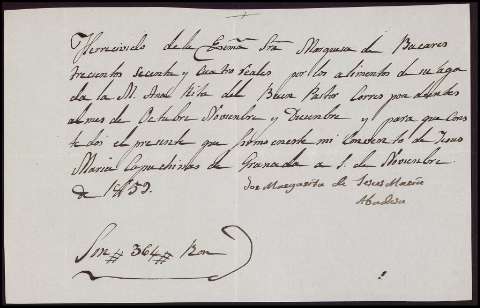 He rrecivido de la Exma Sra Marquesa de Bacares
trecientos secenta y cuatro reales por los alimentos de su laga
da la M. Ana Rita del Buen Pastor Corres pon dientes
al mes de Octubre Noviembre y Diciembre y para que Cons
te doi el presente que firmo en este mi Convento de Jesus
Maria Capuchinas de Granada a 5. de Noviembre
de 1859.
Sor Margarita de Jesus Maria
Abadesa
Son # 364 # Ron